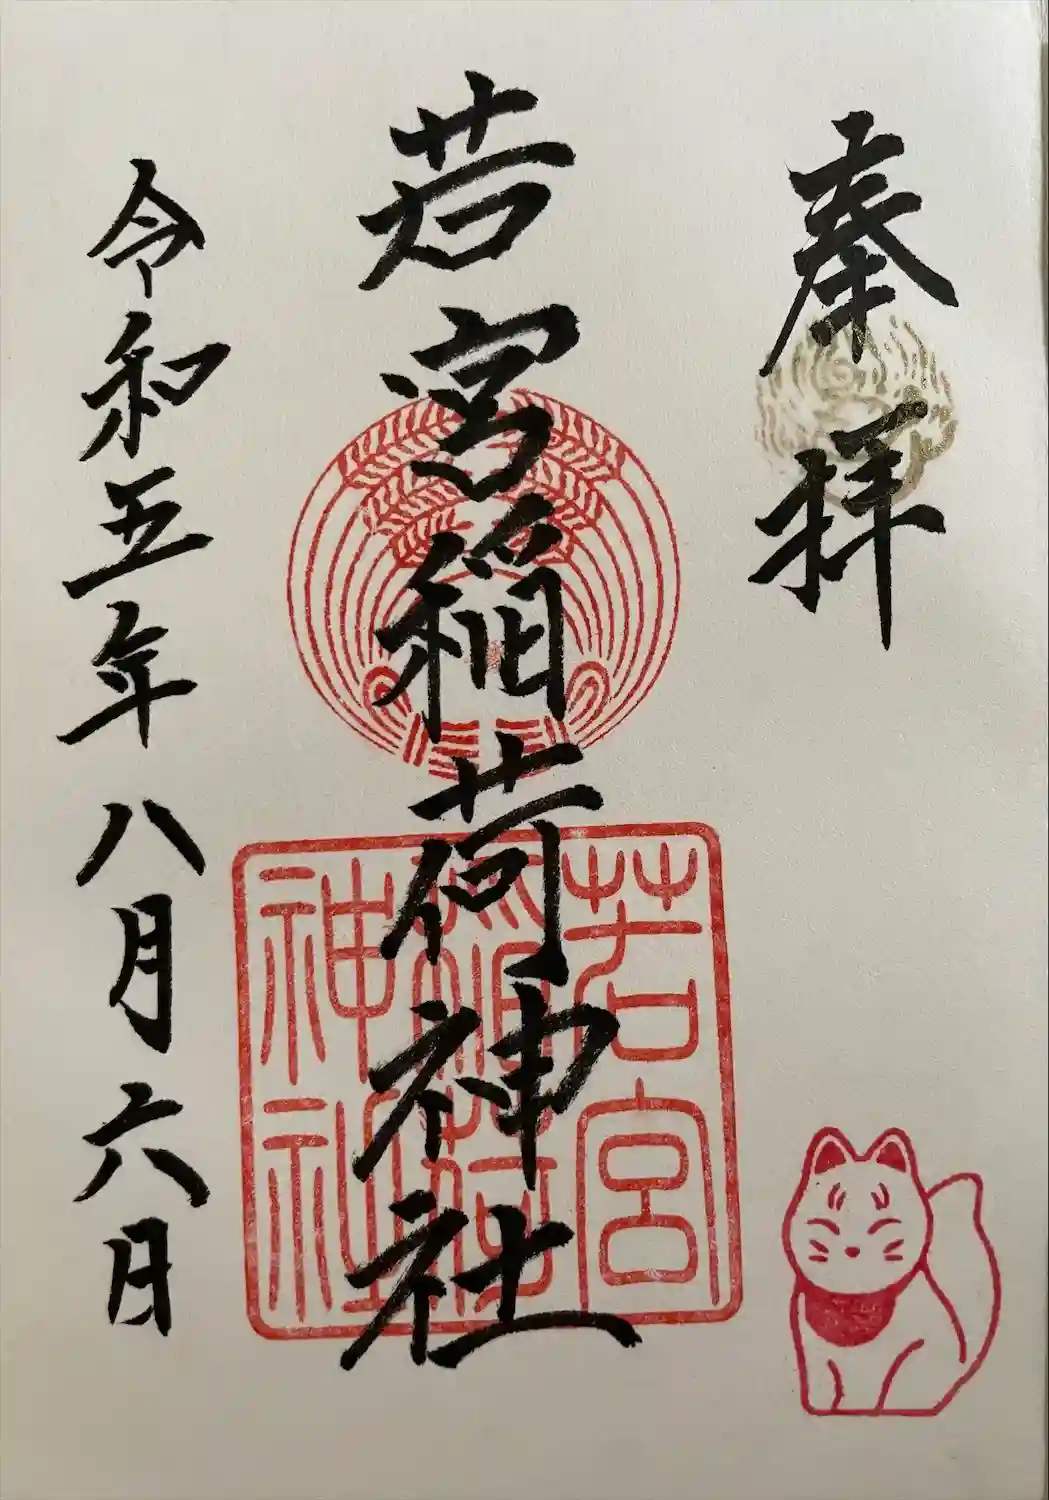 奉拝
若宮稲荷神社
若宮
稲荷
神社
令和五年八月六日